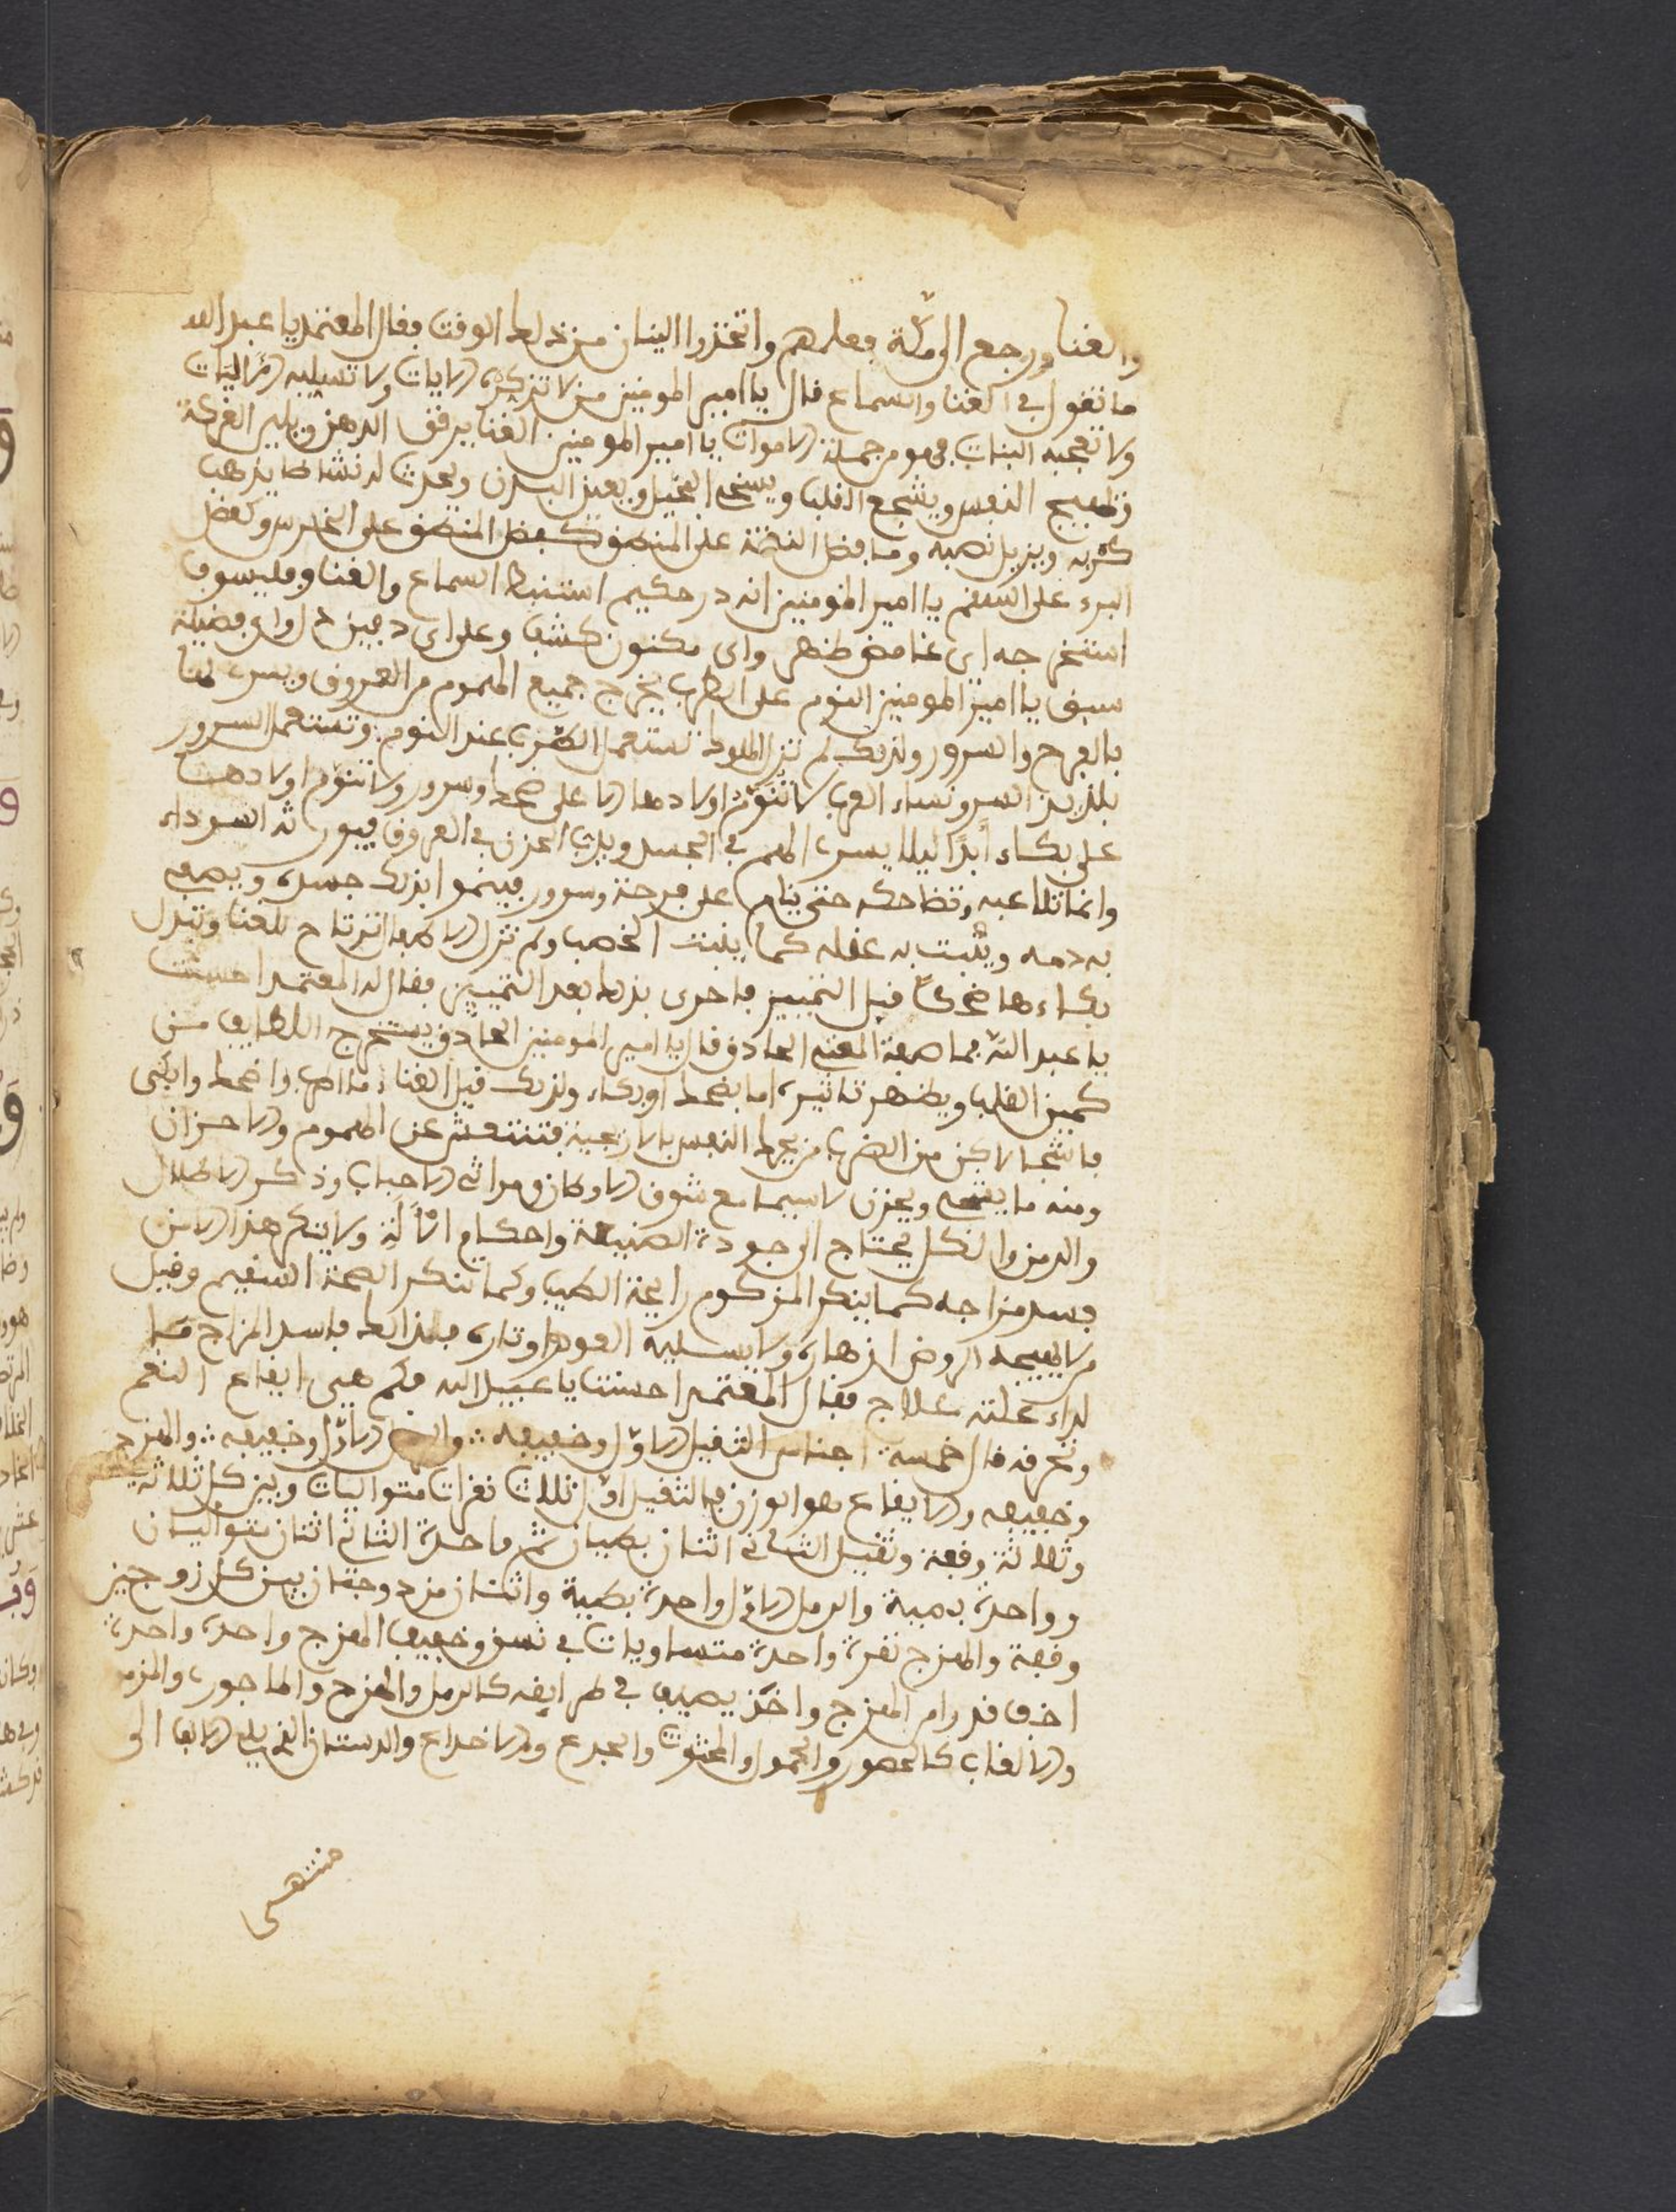 والغنا ورجع الى مكة فعلمهم واتخذوا القيان من ذلك الوقت فقال المعتمد يا عبد الله
ما تقول في الغنا والسماع قال يا امير المومنين من لا تزكره الايات ولا تسليه
ولا تعجبه البنات فهو من جملة الاموات يا امير المومنين الغنا يرقق الذهن ويلين العريكة
وتهيج النفس ويشجع القلب ويسخي البخيل ويعين البدن ويحدث له نشاطا يذهب
كربه ويزيل نصبه وما فضل النغمة على المنطق كفضل المنطق على الخرس وكفضل
البرء على السقم يا امير المومنين لله در حكيم استنبط السماع والغنا وفيلسوف
استخرجه اي غامض ظهر واي مكنون كشف وعلى اي دفين دل واي فضيلة
سبق يا امير المومنين النوم على الطرب يخرج جميع الهموم من العروق ويسر
بالفرح والسرور ولذلك لم تزل الملوك تستعمل الطرب عند النوم وتستعمل السرور
ونساء العرب لا تنوم اولادها الا على ضحك وسرور ولا تنوم اولادهن
على بكاء ابدا ليلا يسرى الهم في الجسد ويدب الحزن في العروق فيورثه السوداء
وانما تلاعبه وتضاحكه حتى ينام على فرحة وسرور فينموا بذلك جسده ويصفو
به دمه ويثبت به عقله كما ينبت الخصب ولم تزل الاطفال ترتاح للغنا وتبدل
بكاءها ضحكا قبل التمييز فاحرى بذلك بعد التمييز فقال له المعتمد احسنت
يا عبد الله فما صفة المغني الحاذق قال يا امير المومنين الحاذق يستخرج اللطايف من
كمين القلب ويظهر تاثيره اما بضحك او بكاء ولذلك قيل الغناء ما اطرب واضحك وابكى
فاشجا لاكن من الضرب من يحرك النفس بالاريحية فتنتعش عن الهموم والاحزان
ومنه ما يشجي ويحزن لا سيما مع شوق الاوطان ومراثي الاحباب وذكر الاطلال
والدمن والكل يحتاج الى جودة الصنعة واحكام الالة ولا ينكر هذا الا من
فسد مزاجه كما ينكر المزكوم رايحة الطيب وكما تنكر الصحة السقيم وقيل
من لا يهيجه الروض ازهاره ولا يسليه العود اوتاره فلذلك فاسد المزاج فما
لداء علته علاج فقال المعتمد احسنت يا عبيد الله فكم هي ايقاع النغم
وطرقه قال خمسة اجناس الثقيل الاول وخفيفه والرمل الاول وخفيفه والهزج
وخفيفه والايقاع هو الوزن فالثقيل الاول ثلاث نقرات متواليات وبين كل ثلاثة
وثلاثة وقفة وثقيل الثاني اثنان بطيان ثم واحدة الثاني اثنان متواليان
وواحدة بدمية والرمل الاول واحدة بطية واثنتان مزدوجتان بين كل زوجين
وقفة والهزج نقرة واحدة متساويات في نسق وخفيف الهزج واحدة واحدة
اخف قدرا من الهزج واخذ يصف في طرايقه كالرمل والهزج والماجوري والمزموم
والالقاب كالمحصور والمحمول والمحثوث والمجدع والاخداع والدستان الذي يلي الانف الى
منتهى